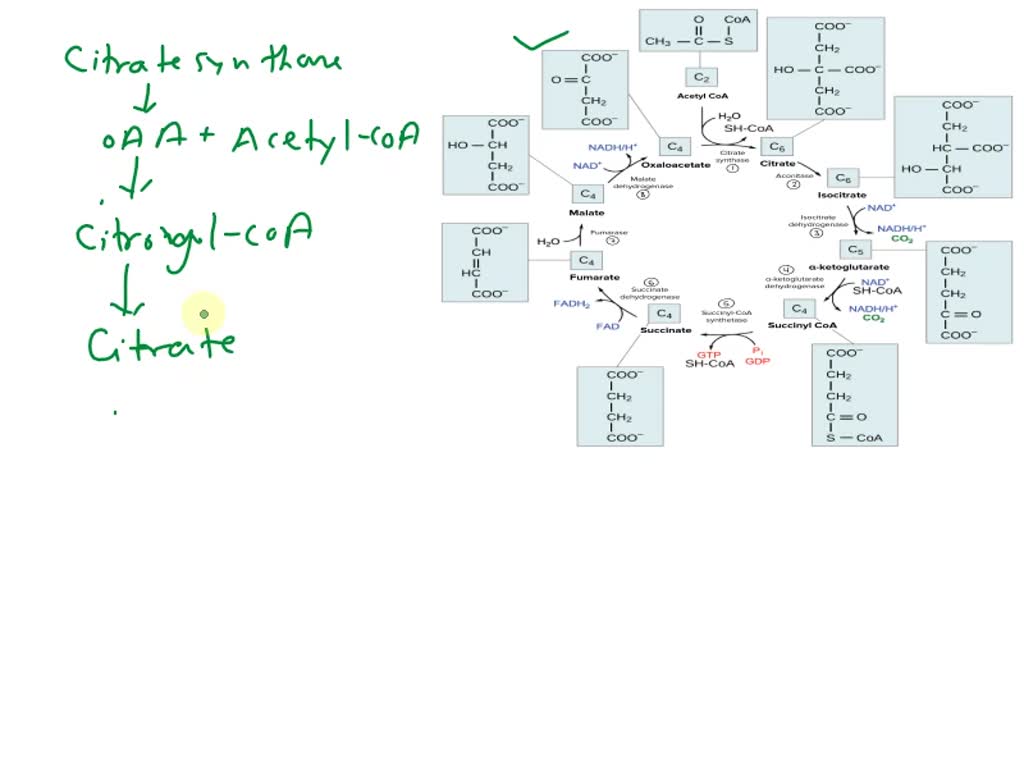 Citrate synthase
OAA + Acetyl-CoA
Citronyl-CoA
Citrate
O CoA
CH₃ — C — S
C₂
Acetyl CoA
H₂O
SH-CoA
Citrate synthase
①
COO⁻
O = C
CH₂
COO⁻
C₄
Oxaloacetate
COO⁻
CH₂
HO — C — COO⁻
CH₂
COO⁻
C₆
Citrate
Aconitase
②
COO⁻
CH₂
HC — COO⁻
HO — CH
COO⁻
C₆
Isocitrate
Isocitrate dehydrogenase
③
NAD⁺
NADH/H⁺
CO₂
C₅
α-ketoglutarate
COO⁻
CH₂
CH₂
C = O
COO⁻
④
α-ketoglutarate dehydrogenase
NAD⁺
SH-CoA
NADH/H⁺
CO₂
C₄
Succinyl CoA
COO⁻
CH₂
CH₂
C = O
S — CoA
⑤
Succinyl-CoA synthetase
Pᵢ
GDP
GTP
SH-CoA
C₄
Succinate
COO⁻
CH₂
CH₂
COO⁻
⑥
Succinate dehydrogenase
FAD
FADH₂
C₄
Fumarate
COO⁻
CH
HC
COO⁻
H₂O
Fumarase
⑦
C₄
Malate
COO⁻
HO — CH
CH₂
COO⁻
Malate dehydrogenase
⑧
NAD⁺
NADH/H⁺